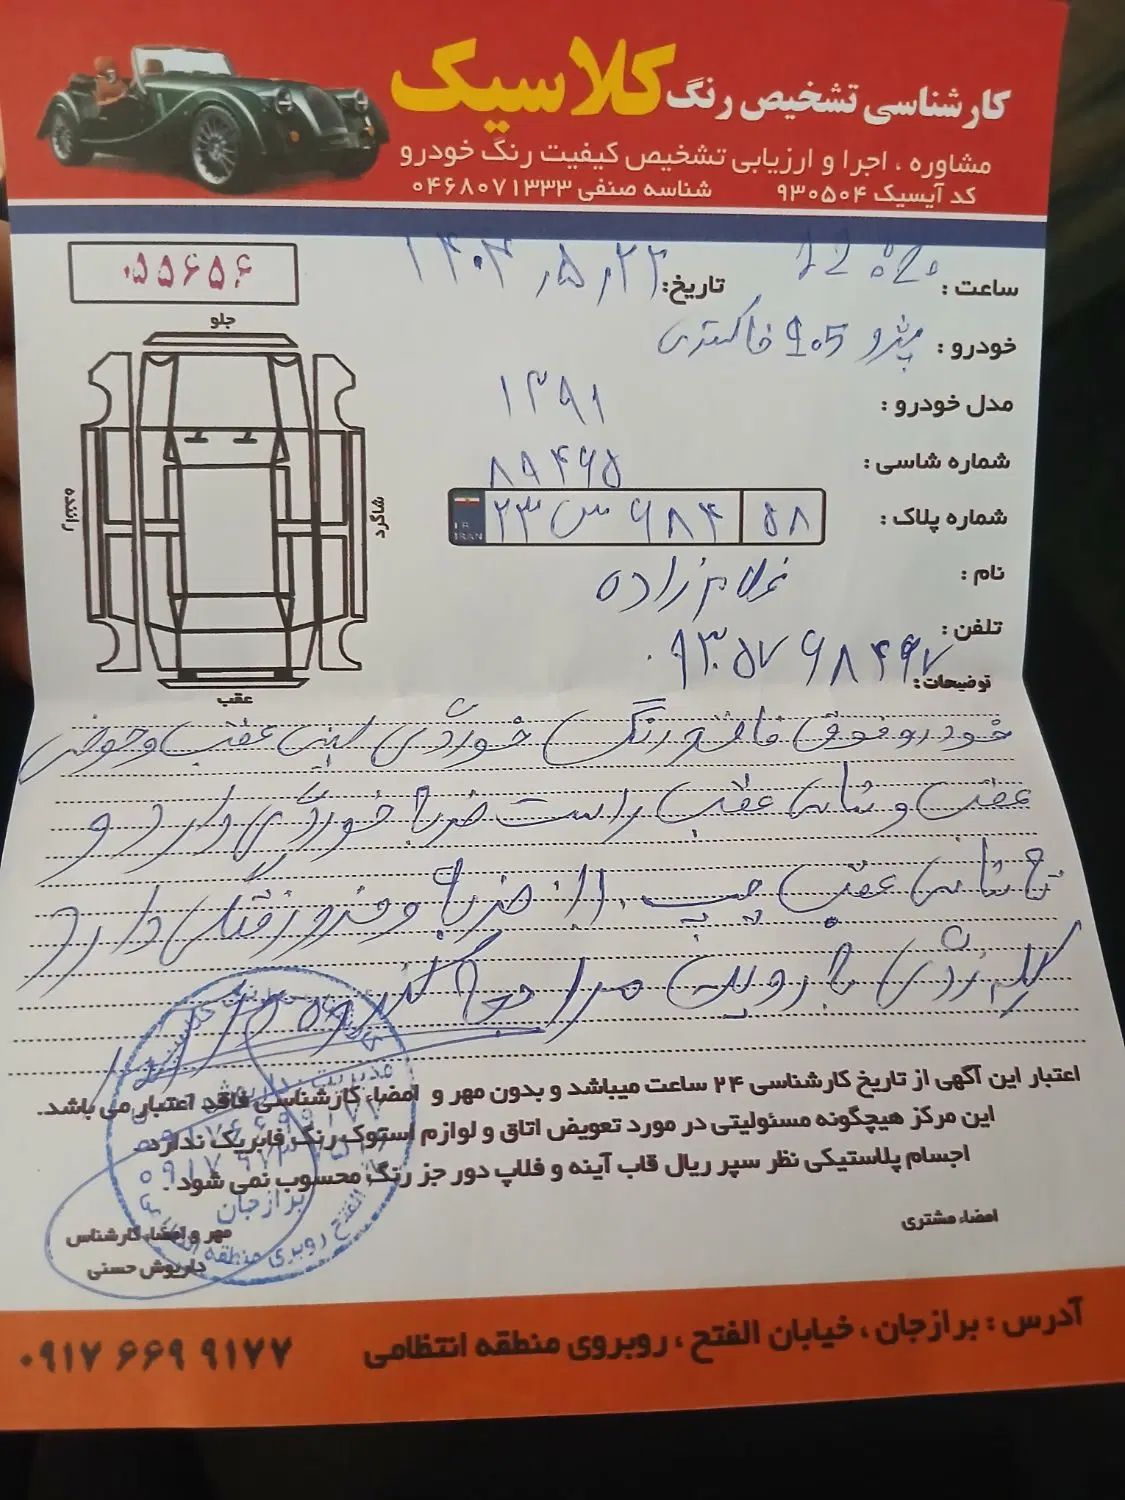 کارشناسی تشخیص رنگ کلاسیک
مشاوره ، اجرا و ارزیابی تشخیص کیفیت رنگ خودرو
کد آیسیک ۹۳۰۵۰۴ شناسه صنفی ۰۴۶۸۰۷۱۳۳۳
۰۵۵۶۵۶
ساعت : 12:20 تاریخ: ۱۴۰۴٫۵٫۲۲
خودرو : پژو 405 خاکستری
مدل خودرو : ۱۳۹۱
شماره شاسی : ۸۹۴۶۵
شماره پلاک : ۲۳ س ۶۸۴ ۵۸
I.R. IRAN
نام : غلام زاده
تلفن : ۰۹۳۰۵۷۶۸۴۶۷
توضیحات :
جلو
راننده
شاگرد
عقب
خودرو فوق فاقد رنگ خوردگی سینی عقب و حوض
عقب و شانه عقب راست ضربه خوردگی دارد و
شانه عقب چپ ضربه و فرو رفتگی دارد
اعتبار این آگهی از تاریخ کارشناسی ۲۴ ساعت میباشد و بدون مهر و امضاء کارشناسی فاقد اعتبار می باشد.
این مرکز هیچگونه مسئولیتی در مورد تعویض اتاق و لوازم استوک رنگ فابریک ندارد.
اجسام پلاستیکی نظر سپر ریال قاب آینه و فلاپ دور جز رنگ محسوب نمی شود .
امضاء مشتری
مهر و امضاء کارشناس
داریوش حسنی
برازجان
آدرس : برازجان ، خیابان الفتح ، روبروی منطقه انتظامی
۰۹۱۷ ۶۶۹ ۹۱۷۷